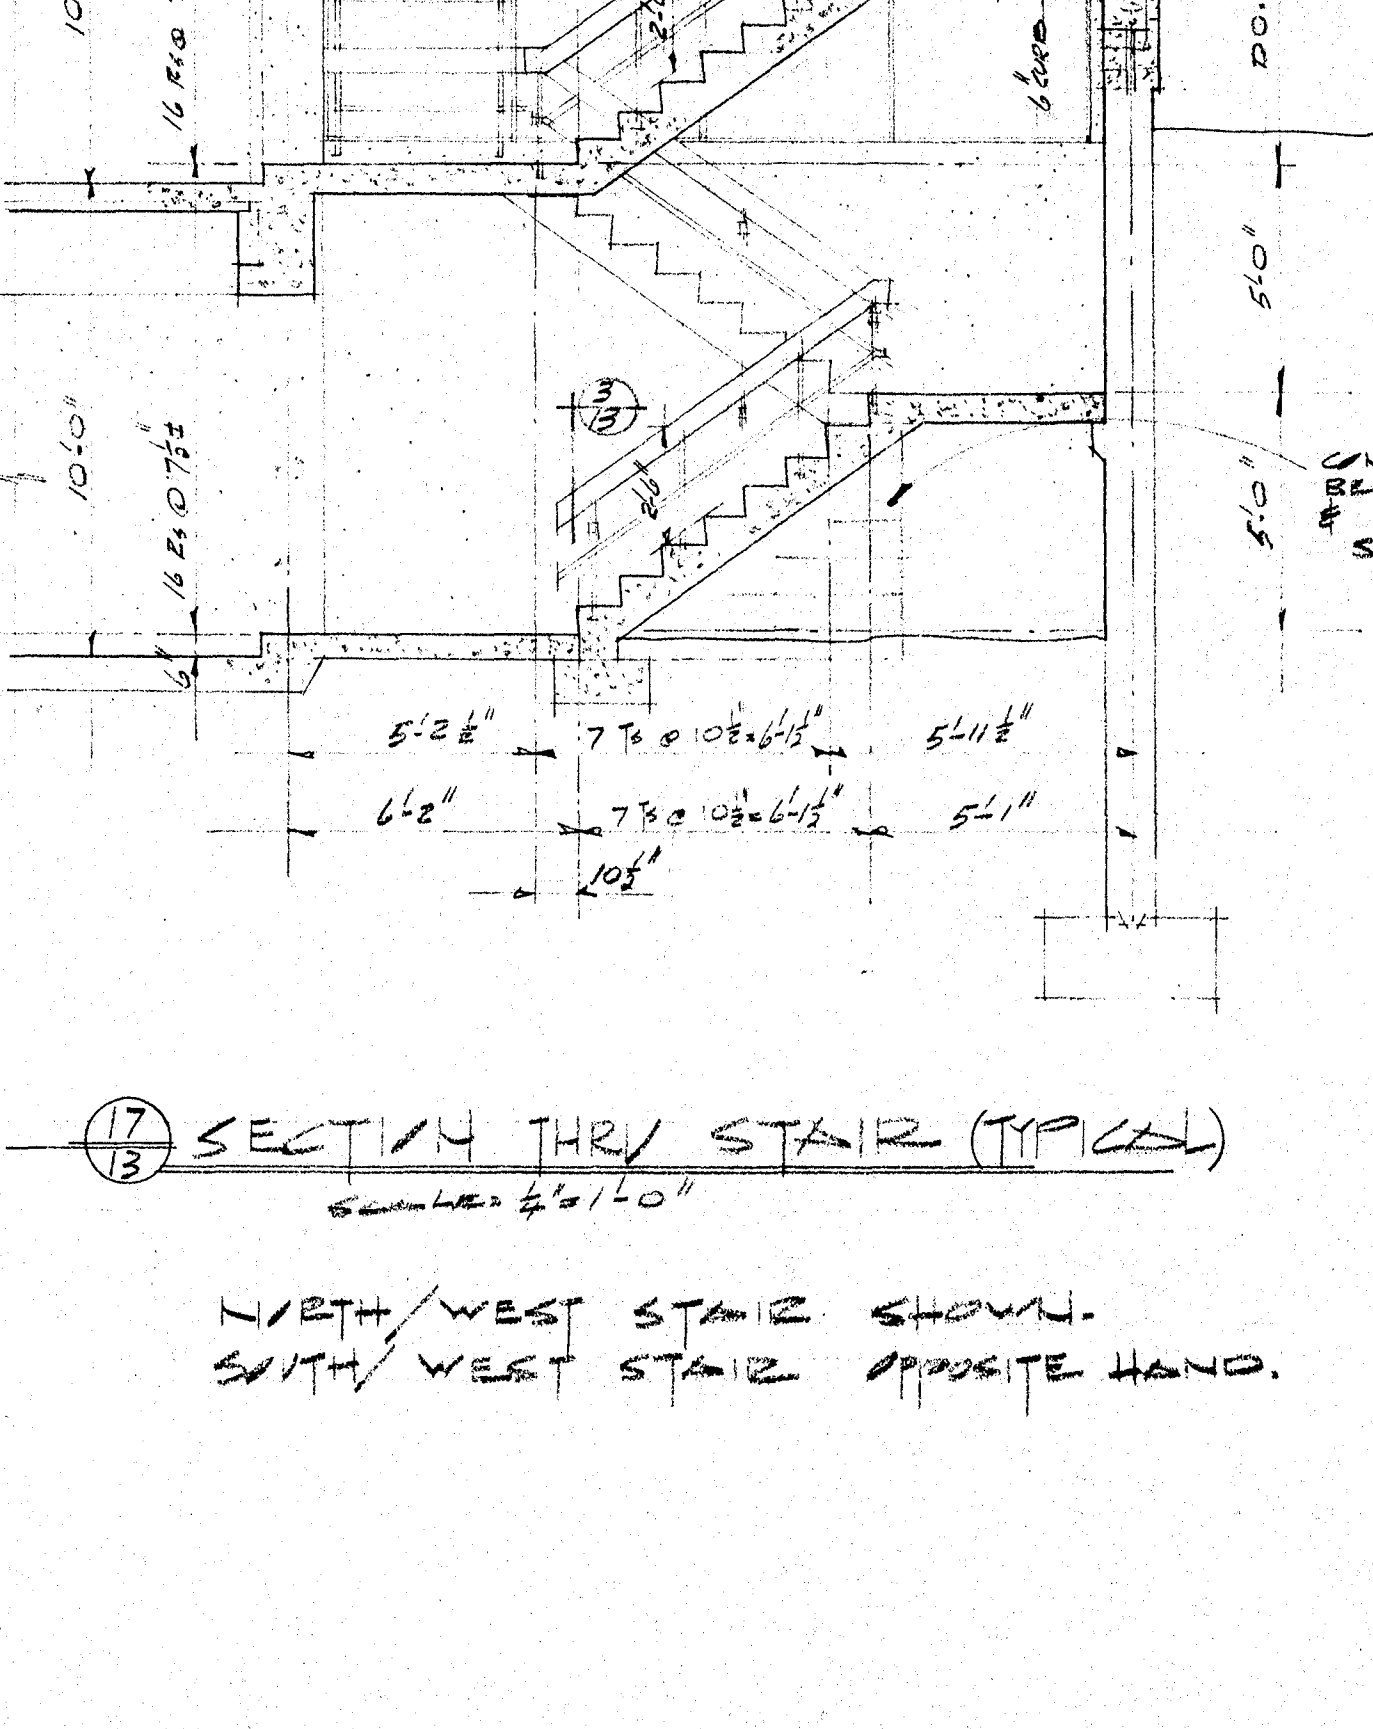 10
16 Rs @
2'-6
6" CURB
DO.
5'-0"
10'-0"
16 Rs @ 7 1/2" ±
3
13
2'-6"
5'-0"
BE
S
6"
5'-2 1/2"
7 Ts @ 10 1/2" = 6'-1 1/2"
5'-11 1/2"
6'-2"
7 Ts @ 10 1/2" = 6'-1 1/2"
5'-1"
10 1/2"
17
13
SECTION THRU STAIR (TYPICAL)
SCALE = 1/4" = 1'-0"
NORTH/WEST STAIR SHOWN.
SOUTH/WEST STAIR OPPOSITE HAND.